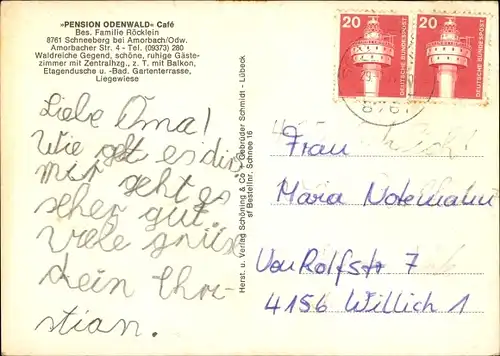 »PENSION ODENWALD« Café
Bes. Familie Röcklein
8761 Schneeberg bei Amorbach/Odw.
Amorbacher Str. 4 - Tel. (09373) 280
Waldreiche Gegend, schöne, ruhige Gäste-
zimmer mit Zentralhzg., z. T. mit Balkon,
Etagendusche u. -Bad. Gartenterrasse,
Liegewiese
Liebe Oma!
Wie geht es dir
mir geht es
seher gut.
Viele grüße
dein Chri-
stian.
Herst. u. Verlag Schöning & Co + Gebrüder Schmidt - Lübeck
sf Bestellnr. Schnee 16
20
DEUTSCHE BUNDESPOST
20
DEUTSCHE BUNDESPOST
8761
Frau
Mara Notemahn
Von Rolfstr 7
4156 Willich 1